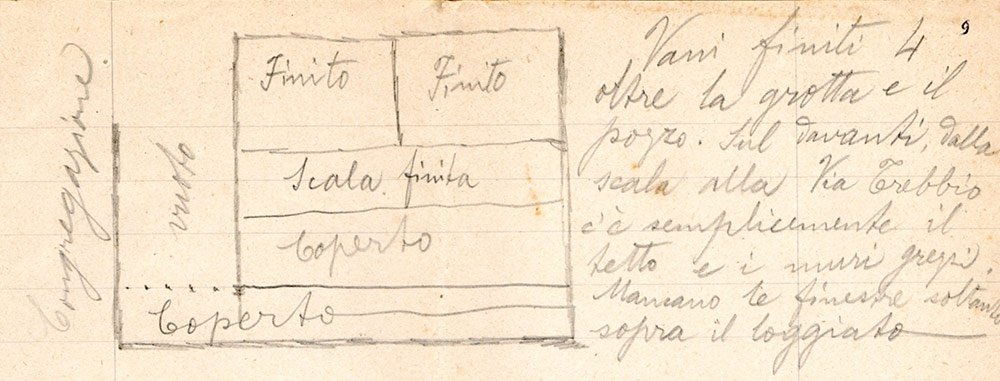 Congregazione.
vuoto
Finito
Finito
Scala finita
Coperto
Coperto
9
Vani finiti 4
oltre la grotta e il
pozzo. Sul davanti, dalla
scala alla Via Trebbio
c'è semplicemente il
tetto e i muri grezzi.
Mancano le finestre soltanto
sopra il loggiato